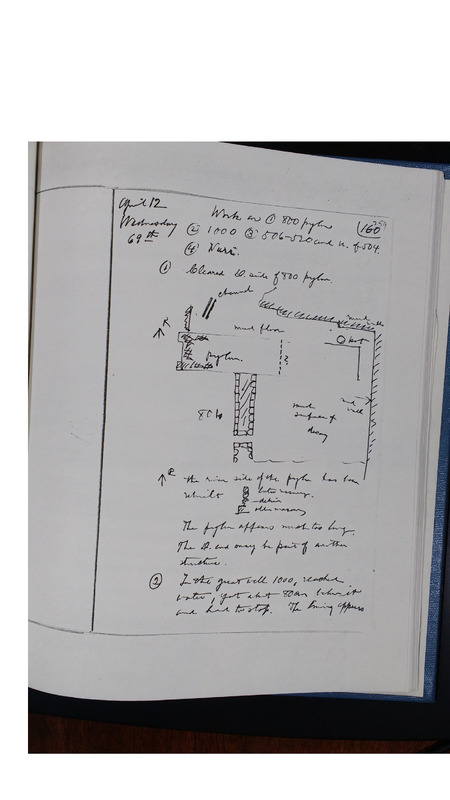 April 12
Wednesday
69th
160
Work on ① 800 pylon
② 1000 ③ 506-520 and n. of 504.
④ Nuri.
① Cleared D. side of 800 pylon.
channel
mud
R
mud floor
pot
pylon.
?
mud wall
80
mud
surface of
decay
R
the river side of the pylon has been
rebuilt
later masonry.
debris
older masonry
The pylon appears much too long.
The D. end may be part of another
structure.
② In the great well 1000, reached
water, got abt 80 cm below it
and had to stop. The lining appears